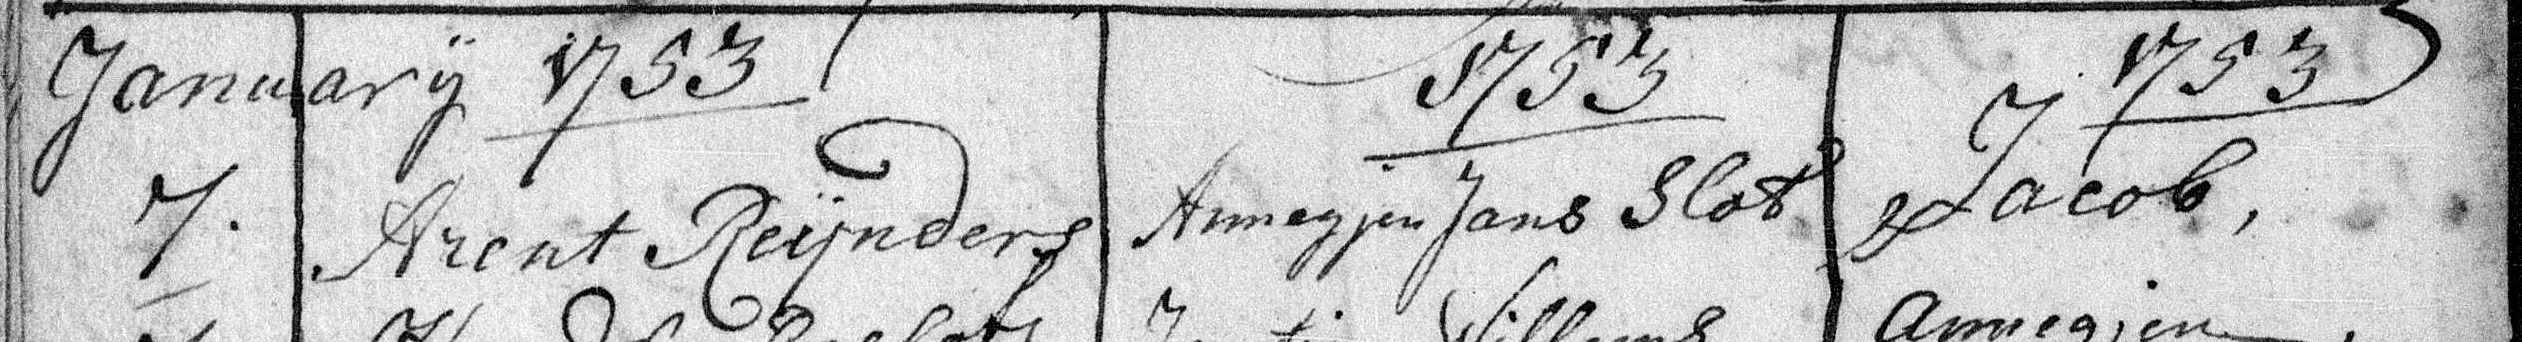 Januarÿ 1753 1753 1753
7. Arent Reÿnders Annegjen Jans Slot Jacob,
Willems Annegjen